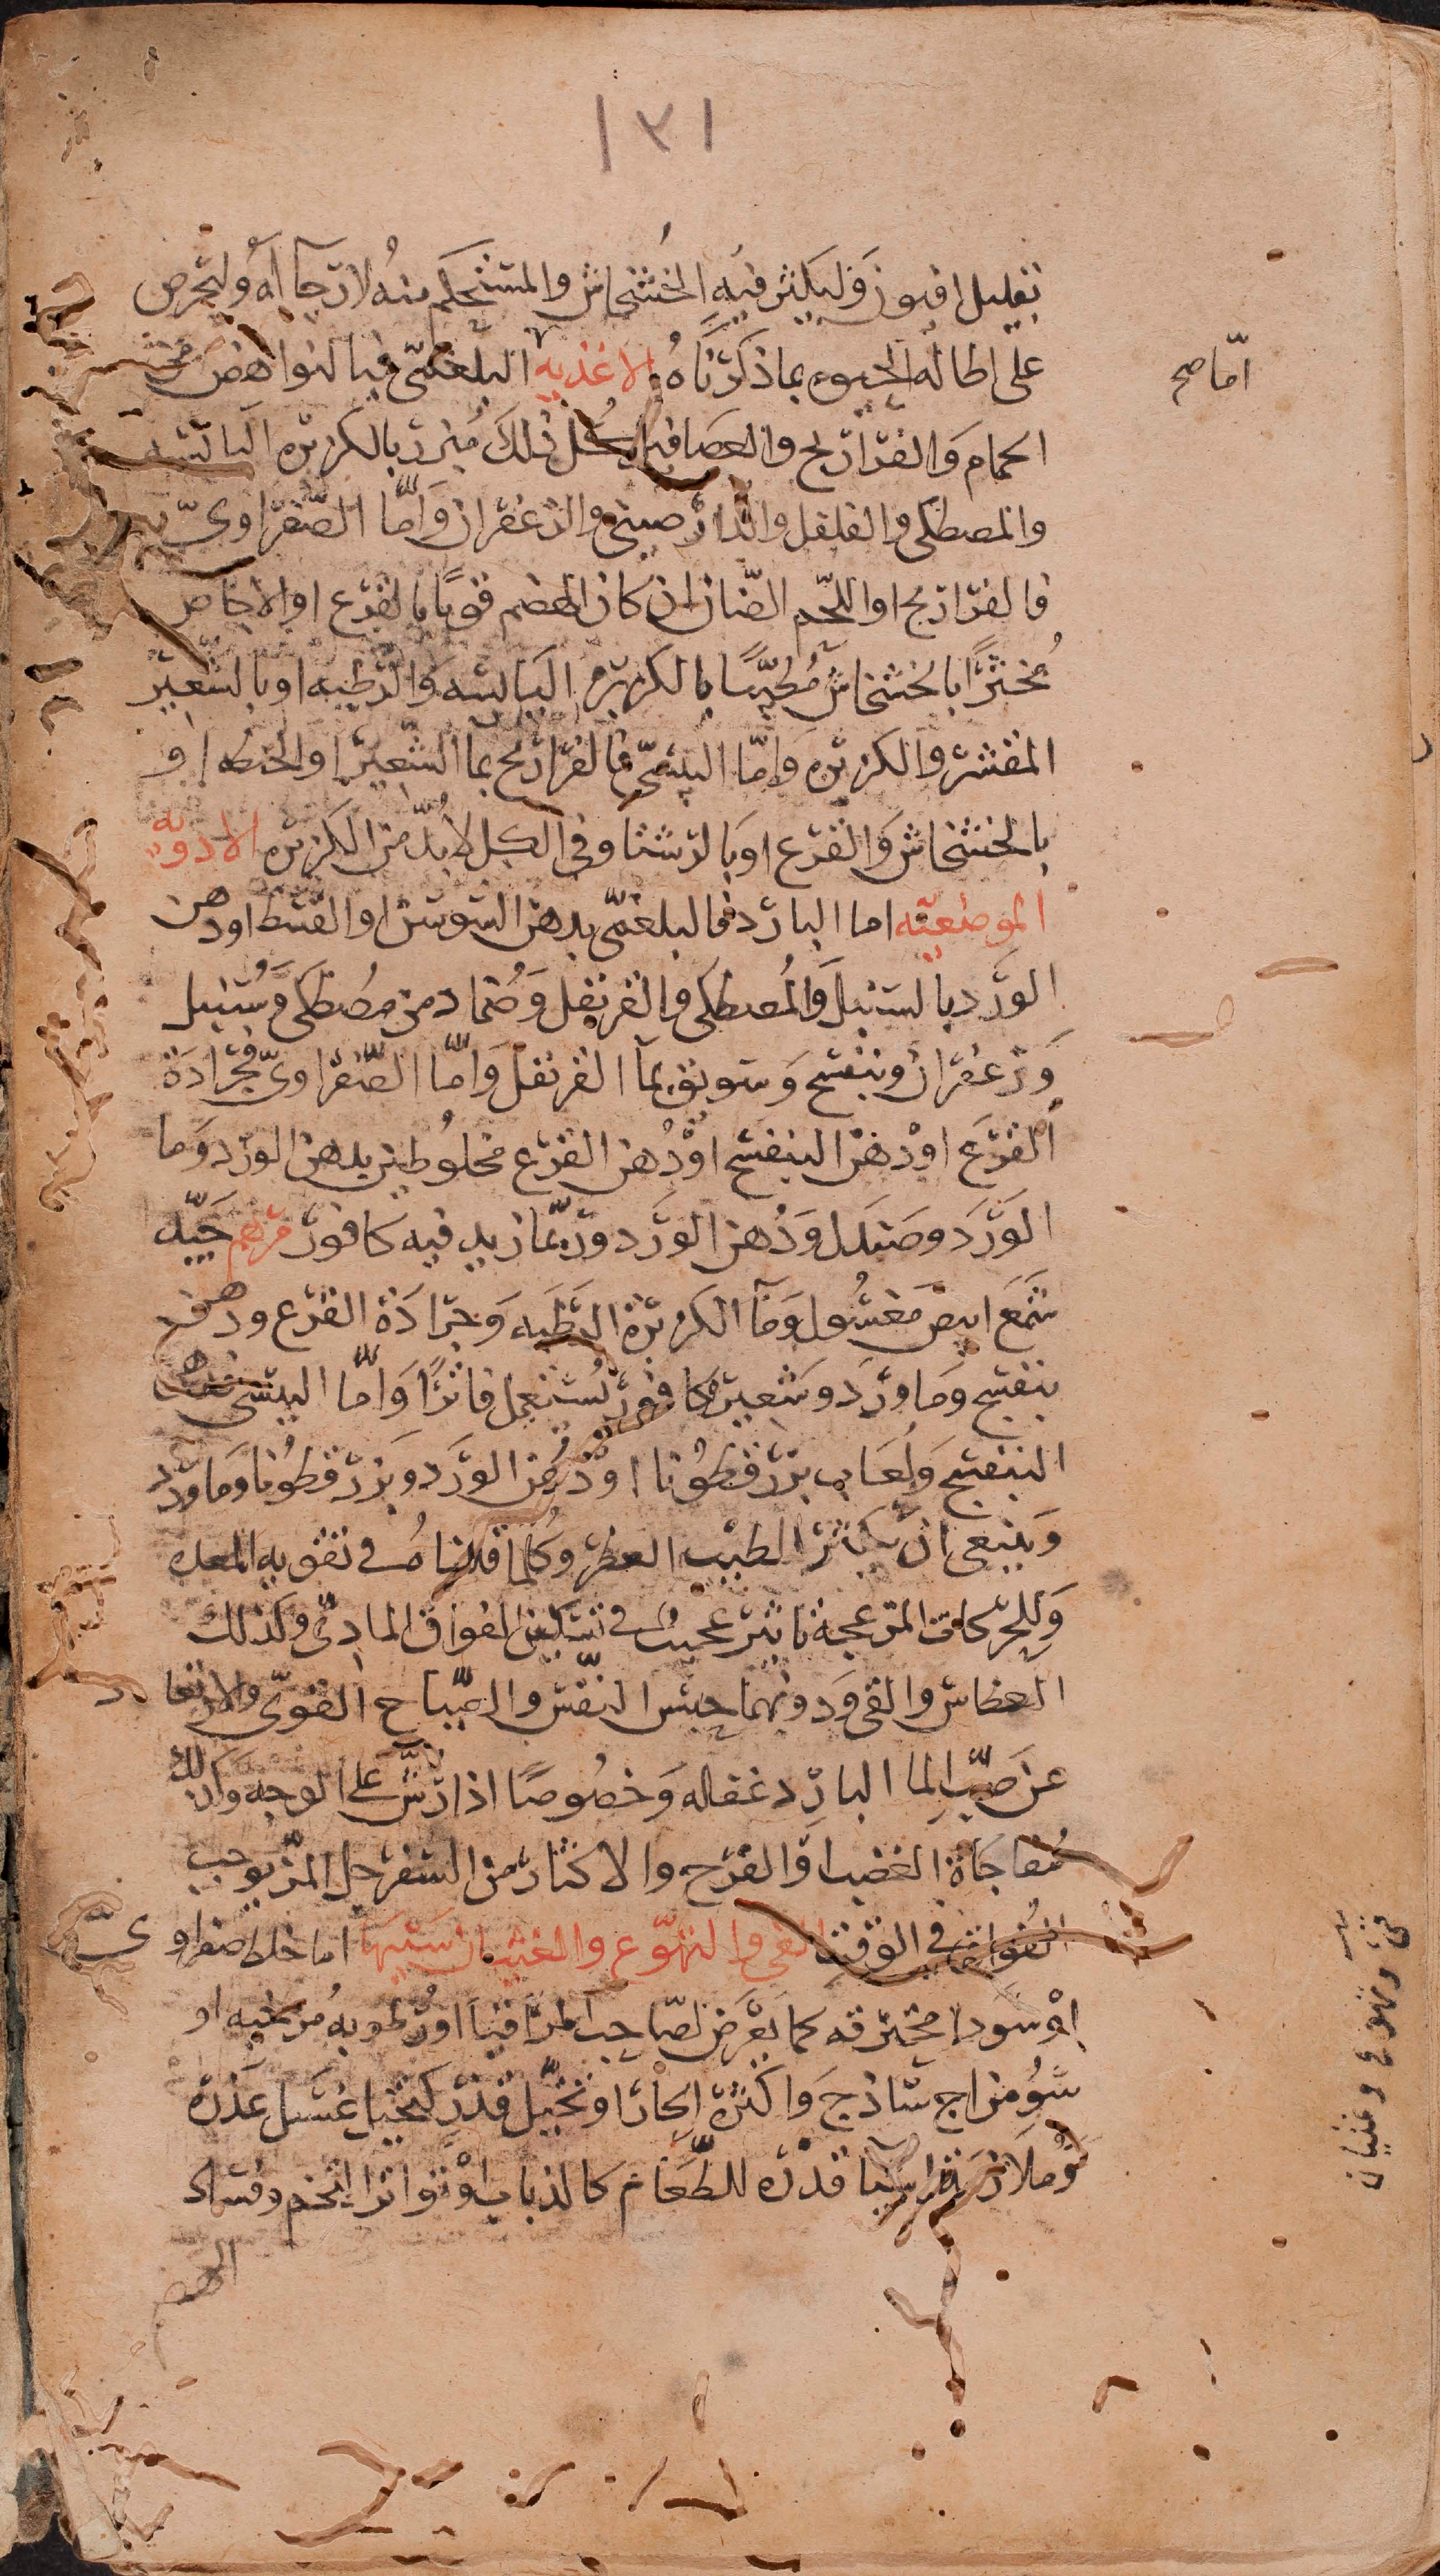 ١٣١
بقليل افيون وليكثر فيه الخشخاش والمستحكم منه لا رجاء له وليحرص
على اطاله الحيوه بما ذكرناه الاغذيه البلغمى فبالنواهض
اما صح
الحمام والفراريج والعصافير كل ذلك مبزر بالكزبره اليابسه
والمصطكى والفلفل والدارصينى والزعفران واما الصفراوى
فالفراريج او اللحم الضان ان كان الهضم قويا بالقرع او الاجاص
مخثرا بالخشخاش مطيبا بالكزبره اليابسه والرطبه او بالشعير
المقشر والكزبره واما اليبسى فالفراريج بما الشعير او الحنطه او
بالخشخاش والقرع او بالرشتا وفى الكل لا بد من الكزبره الادويه
الموضعيه اما البارد فالبلغمى بدهن السوسن او القسط او دهن
الورد بالسنبل والمصطكى والقرنفل وضماد من مصطكى وسنبل
وزعفران وبنفسج وسويق بمآ القرنفل واما الصفراوى فجرادة
القرع او دهن البنفسج او دهن القرع مخلوطين بدهن الورد وما
الورد وصندل ودهن الورد وربما زيد فيه كافور مرهم جيد
شمع ابيض مغسول ومآ الكزبرة الرطبه وجرادة القرع ودهن
بنفسج وما ورد وشعير وكافور يستعمل فاترا واما اليبسى فدهن
البنفسج ولعاب بزرقطونا او دهن الورد وبزرقطونا وما ورد
وينبغى ان يكثر الطيب العطر وكلما قلناه فى تقويه المعده
وللحركات المزعجة تاثير عجيب فى تسكين الفواق المادى وكذلك
العطاس والقى ودونهما حبس النفس والصياح القوى والارتعاد
عن صب الما البارد غفله وخصوصا اذا رش على الوجه وكذلك
مفاجاة الغضب او الفرح والاكثار من السفرجل المز يوجب
الفواق فى الوقت القى والتهوع والغثيان سببها اما خلط صفراوى
او سودا محترقه كما يعرض لصاحب المراقيا او رطوبه مرخيه او
سو مزاج ساذج واكثره الحار او تخيل قذر كتخيل غسل عذره
وملازمة اشيا قذره للطعام كالذباب او تواتر التخم وفساد
الهضم
قى وتهوع وغثيان